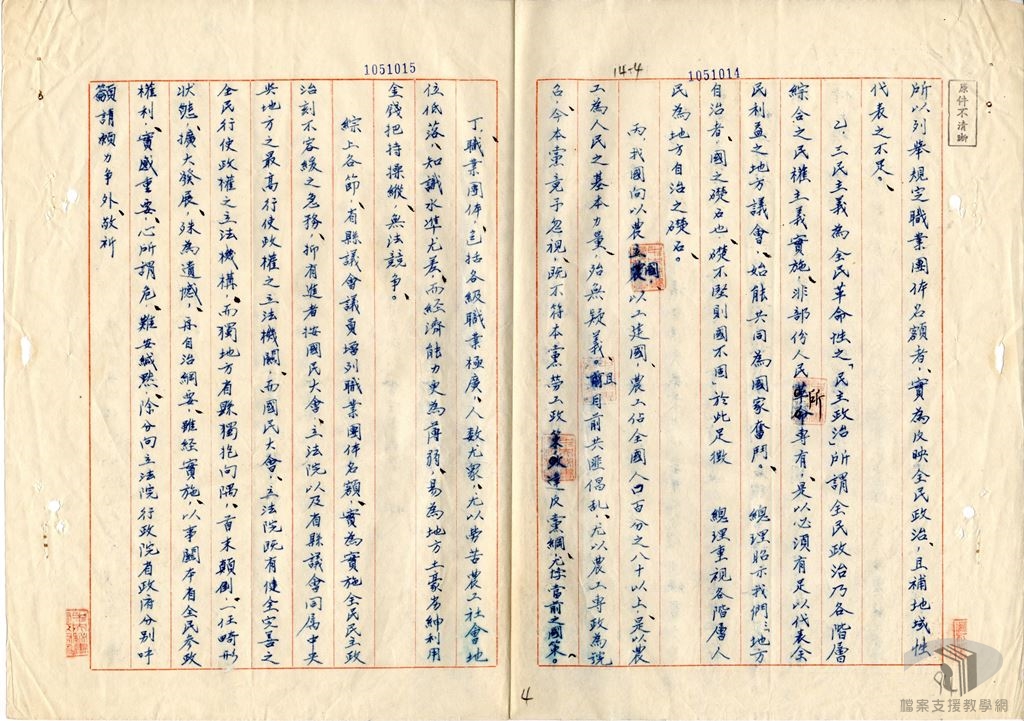 原件不清晰
1051014
14-4
所以列舉規定職業團体名額者、實為反映全民政治、且補地域性
代表之不足。
乙、三民主義為全民革命性之「民主政治」所謂全民政治乃各階層
綜合之民權主義實施、非部份人民所專有、是以必須有足以代表全
民利益之地方議會、始能共同為國家奮鬥。總理昭示我們:地方
自治者、國之礎石也、礎不堅則國不固」於此足徵 總理重視各階層人
民為地方自治之礎石。
丙、我國向以農立國、以工建國、農工佔全國人口百分之八十以上、是以農
工為人民之基本力量、殆無疑義。且目前共匪倡乱、尤以農工專政為號
召、今本黨竟予忽視、既不符本黨勞工政策、違反黨綱、尤悖當前之國策。
1051015
丁、職業團体、包括各級職業極廣、人數尤眾、尤以勞苦農工社會地
位低落、知識水準尤差、而經濟能力更為薄弱、易為地方土豪劣紳利用
金錢把持操縱、無法競争。
綜上各節、省縣議會議員增列職業團体名額、實為實施全民民主政
治刻不容緩之急務、抑有進者按國民大會、立法院以及省縣議會同属中央
與地方之最高行使政權之立法機關、而國民大會、立法院既有健全完善之
全民行使政權之立法機構、而獨地方省縣獨抱向隅、首末顛倒、一任畸形
狀態、擴大發展、殊為遺憾、再自治綱要、雖經實施、以事關本省全民參政
權利、實感重要、心所謂危、難安緘默、除分向立法院行政院省政府分別呼
籲請賴力争外、敬祈
4
檔案支援教學網